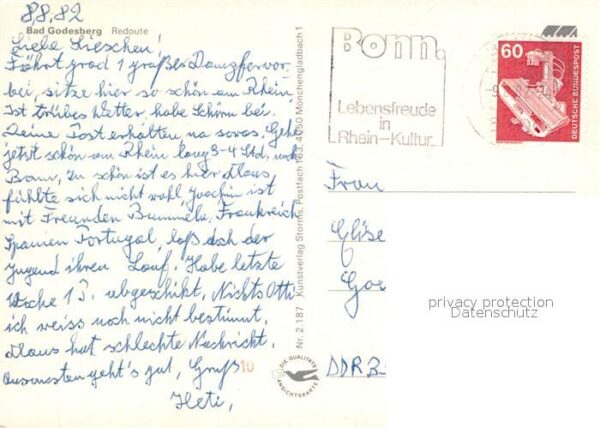 8.8.82
Bad Godesberg Redoute
Liebe Lieschen!
Fährt grad 1 großer Dampfer vor
bei, sitze hier so schön am Rhein,
Ist trübes Wetter, habe Schirm bei.
Deine Post erhalten na sowas. Gehe
jetzt schön am Rhein lang 3-4 Std, nach
Bonn, zu schön ist es hier Klaus
fühlte sich nicht wohl Joachim ist
mit Freunden Bummeln, Frankreich
Spanien Portugal, laß doch der
Jugend ihren Lauf. Habe letzte
Woche 1 P. abgeschikt, Nichts Otti
ich weiss noch nicht bestimmt.
Klaus hat schlechte Nachricht,
Ansonsten geht's gut, Gruß
10
Heti,
Nr. 2 187 Kunstverlag Storms, Postfach 163, 4050 Mönchengladbach 1
DIE QUALITÄTS
ANSICHTSKARTE
Bonn.
Lebensfreude
in
Rhein-Kultur.
60
DEUTSCHE BUNDESPOST
Frau
Elise
Goe
DDR 3
privacy protection
Datenschutz